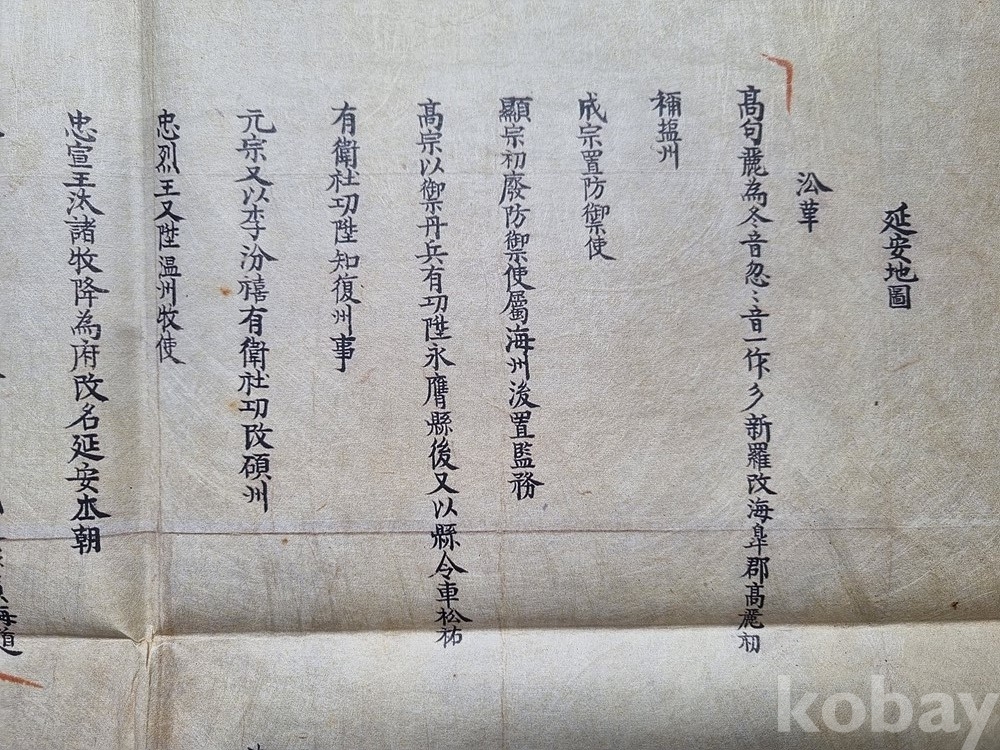 延安地圖
沿革
高句麗為冬音忽〻音一作彡新羅改海皐郡高麗初
稱塩州
成宗置防禦使
顯宗初廢防禦使屬海州後置監務
高宗以禦丹兵有功陞永膺縣後又以縣令車松祐
有衛社功陞知復州事
元宗又以李汾禧有衛社功改碩州
忠烈王又陞温州牧使
忠宣王汰諸牧降為府改名延安本朝
海道
kobay